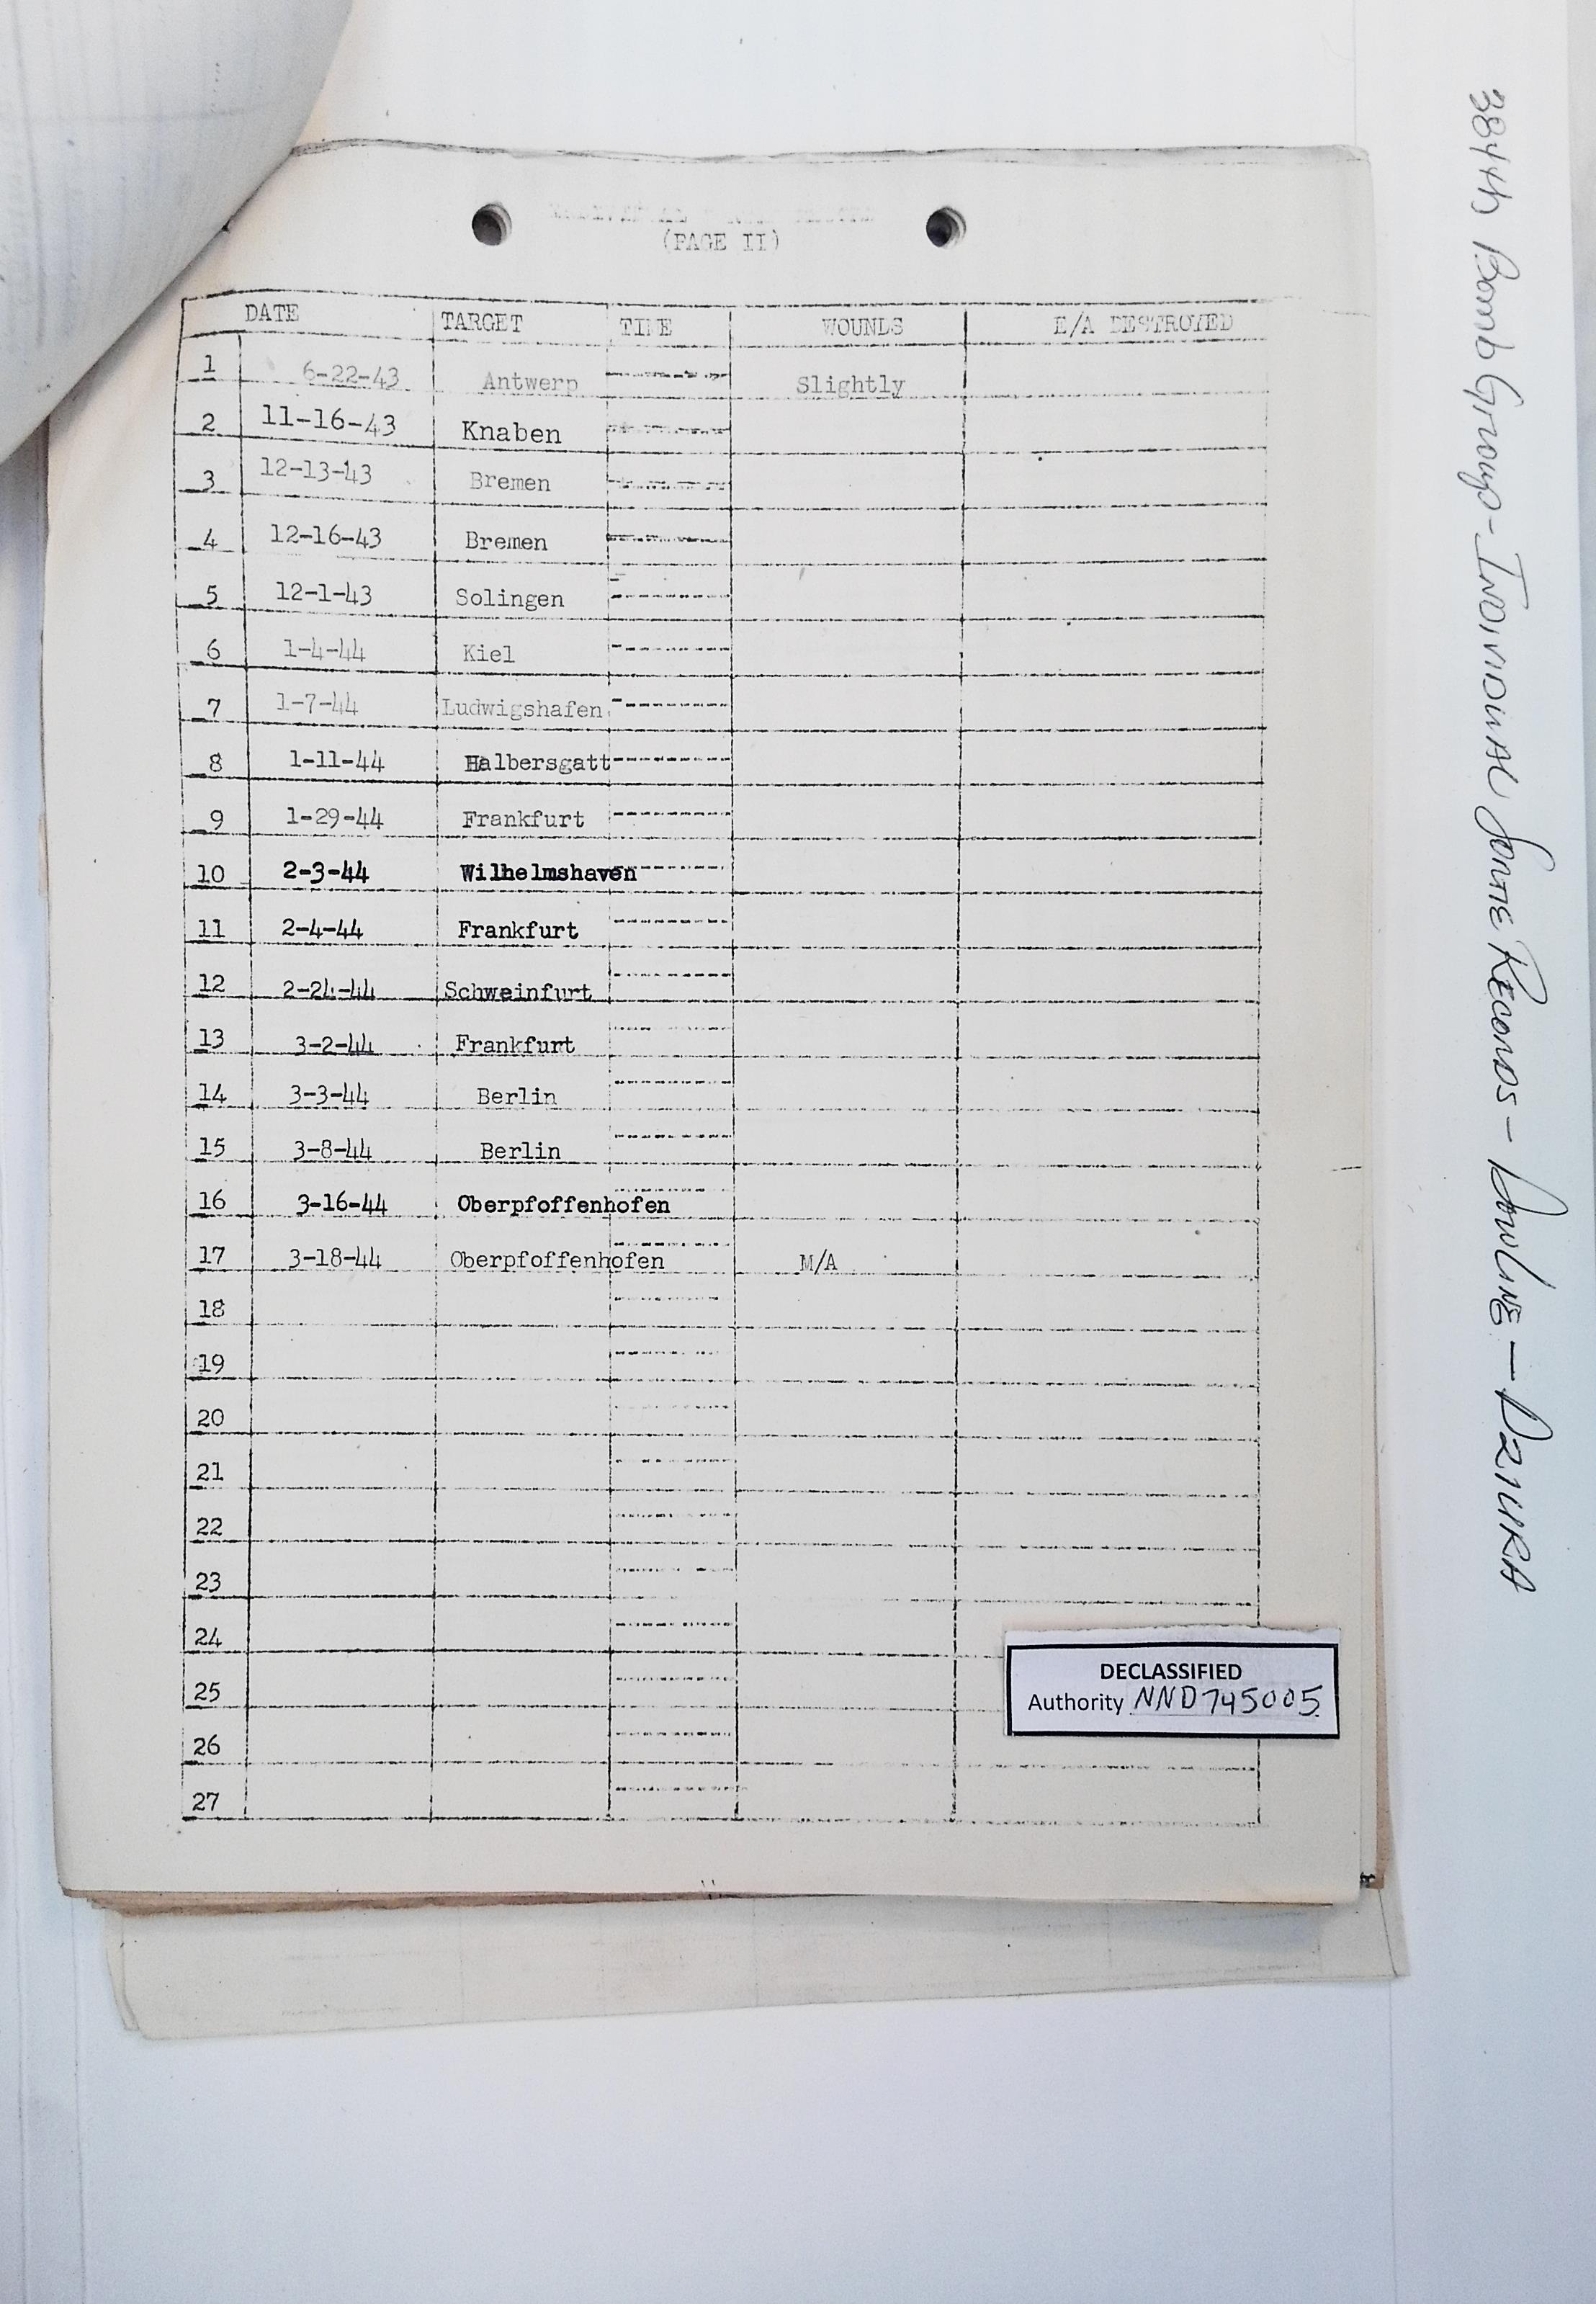 (PAGE II)
DATE TARGET TIME WOUNDS E/A DESTROYED
1 6-22-43 Antwerp Slightly
2 11-16-43 Knaben
3 12-13-43 Bremen
4 12-16-43 Bremen
5 12-1-43 Solingen
6 1-4-44 Kiel
7 1-7-44 Ludwigshafen
8 1-11-44 Halbersgatt
9 1-29-44 Frankfurt
10 2-3-44 Wilhelmshaven
11 2-4-44 Frankfurt
12 2-24-44 Schweinfurt
13 3-2-44 Frankfurt
14 3-3-44 Berlin
15 3-8-44 Berlin
16 3-16-44 Oberpfoffenhofen
17 3-18-44 Oberpfoffenhofen M/A
18
19
20
21
22
23
24
25
26
27
DECLASSIFIED
Authority NND745005
384th Bomb Group - INDIVIDUAL SORTIE RECORDS - DOWLING - DZIURA